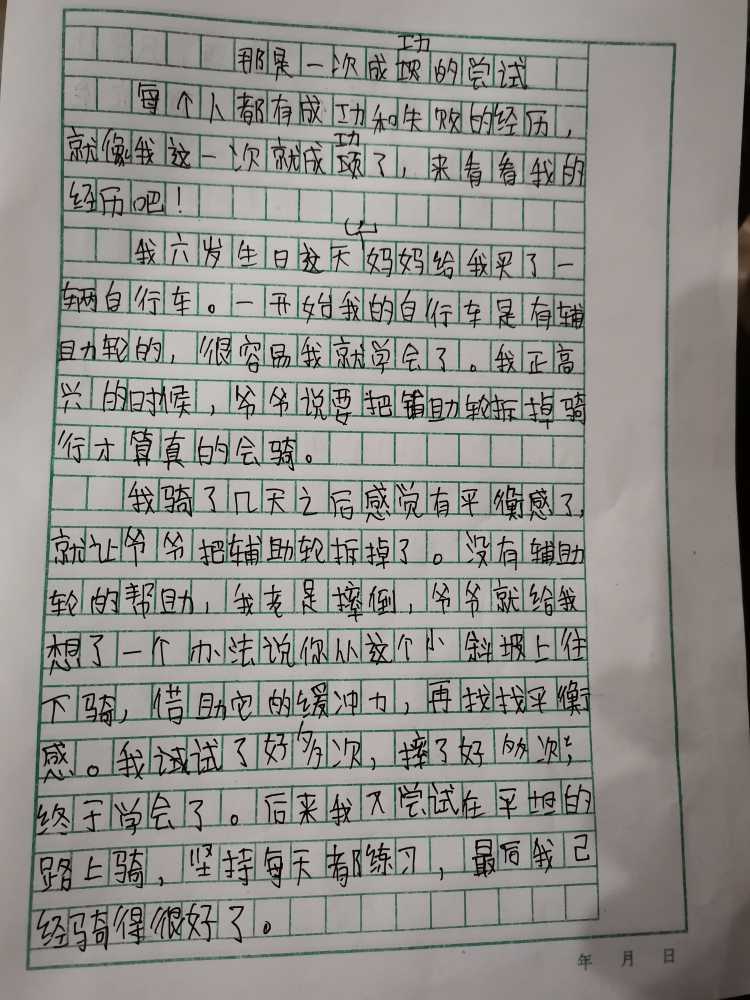 那是一次成功的尝试
每个人都有成功和失败的经历，
就像我这一次就成功了，来看看我的
经历吧！
我六岁生日这天，妈妈给我买了一
辆自行车。一开始我的自行车是有辅
助轮的，很容易我就学会了。我正高
兴的时候，爷爷说要把辅助轮拆掉骑
行才算真的会骑。
我骑了几天之后感觉有平衡感了，
就让爷爷把辅助轮拆掉了。没有辅助
轮的帮助，我老是摔倒，爷爷就给我
想了一个办法说你从这个小斜坡上往
下骑，借助它的缓冲力，再找找平衡
感。我试试了好多次，摔了好多次，
终于学会了。后来我又尝试在平坦的
路上骑，坚持每天都练习，最后我已
经骑得很好了。
年 月 日